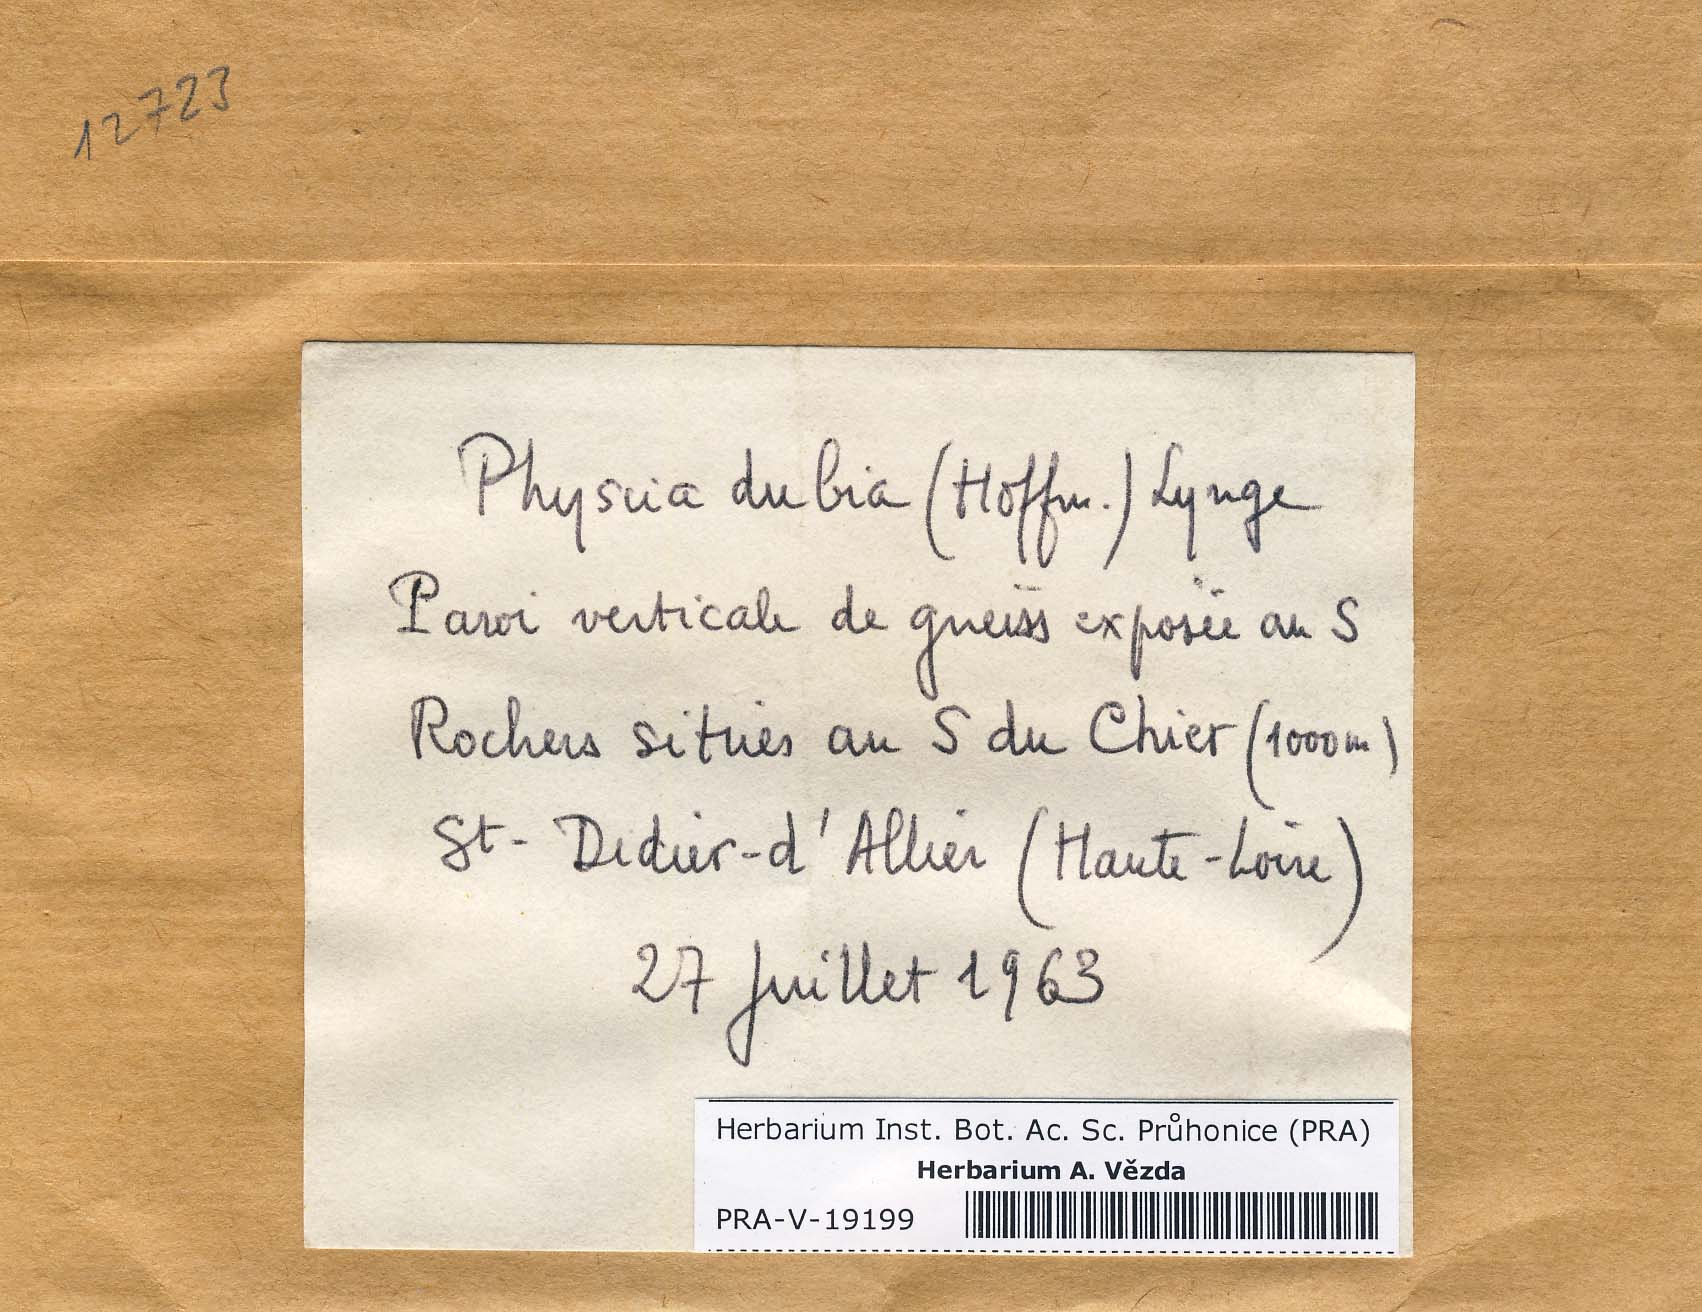 12723
Physcia dubia (Hoffm.) Lynge
Paroi verticale de gneiss exposée au S
Rochers situés au S du Chier (1000m)
St-Didier-d'Allier (Haute-Loire)
27 Juillet 1963
Herbarium Inst. Bot. Ac. Sc. Průhonice (PRA)
Herbarium A. Vězda
PRA-V-19199